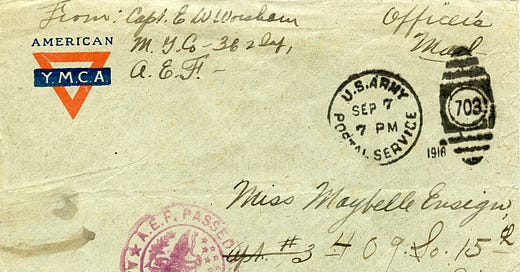 From: Capt. E W Worsham
M. G Co - 362 Inf,
A. E. F. -
Officer's
Mail
AMERICAN
Y.M.C.A
U.S. ARMY
SEP 7
7 PM
POSTAL SERVICE
1918
703
Miss Maybelle Ensign,
Apt. #3 409. So. 15th
A.E.F. PASSED